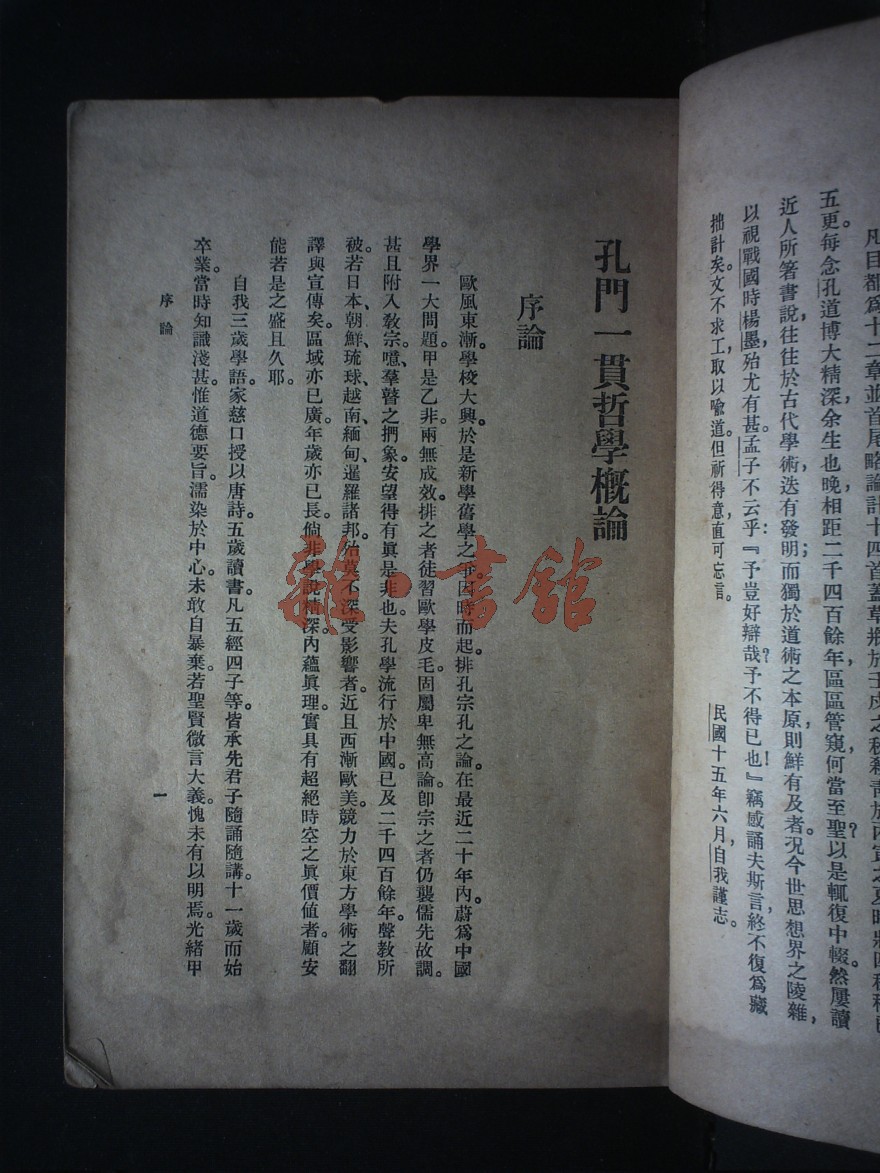 凡目都爲十二章並首尾略論計十四首蓋草
五更。每念孔道博大精深余生也晚相距二千四百餘年，區區管窺，何當至聖？以是輒復中輟然屢讀
近人所箸書說，往往於古代學術迭有發明；而獨於道術之本原，則鮮有及者。況今世思想界之陵雜，
以視戰國時楊墨，殆尤有甚！孟子不云乎：『予豈好辯哉？予不得已也！』竊感誦夫斯言，終不復爲藏
拙計矣。文不求工，取以喩道。但祈得意，直可忘言。
民國十五年六月，自我謹志。
孔門一貫哲學概論
序論
歐風東漸。學校大興。於是新學舊學之爭。因時而起。排孔宗孔之論。在最近二十年內。蔚爲中國
學界一大問題。甲是乙非。兩無成效。排之者徒習歐學皮毛。固屬卑無高論。卽宗之者仍襲儒先故調。
甚且附入敎宗。噫、羣瞽之捫象。安望得有眞是非也。夫孔學流行於中國。已及二千四百餘年。聲敎所
被。若日本、朝鮮、琉球、越南、緬甸、暹羅諸邦。殆莫不深受影響者。近且西漸歐美。競力於東方學術之翻
譯與宣傳矣。區域亦已廣。年歲亦已長。倘非學說精深。內蘊眞理。實具有超絕時空之眞價値者。顧安
能若是之盛且久耶。
自我三歲學語。家慈口授以唐詩。五歲讀書。凡五經四子等。皆承先君子隨誦隨講。十一歲而始
卒業。當時知識淺甚。惟道德要旨。濡染於中心。未敢自暴棄。若聖賢微言大義。愧未有以明焉。光緒甲
序論
一
雜·書館